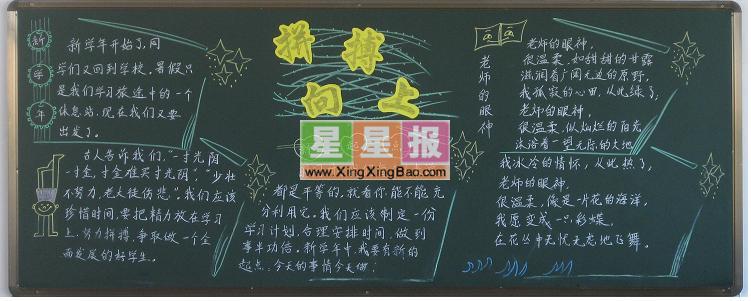 新学年
新学年开始了,同
学们又回到学校。暑假只
是我们学习旅途中的一个
休息站,现在我们又要
出发了。
古人告诉我们,“一寸光阴
一寸金,寸金难买寸光阴”,“少壮
不努力,老大徒伤悲”。我们应该
珍惜时间,要把精力放在学习
上,努力拼搏,争取做一个全
面发展的好学生。
拼搏
向上
星星报
www.XingXingBao.com
都是平等的,就看你能不能充
分利用它。我们应该制定一份
学习计划,合理安排时间,做到
事半功倍。新学年中,我要有新的
起点,今天的事情今天做!
老师的眼神
老师的眼神,
很温柔,如甜甜的甘露
滋润着广阔无边的原野,
我孤寂的心田,从此绿了;
老师的眼神,
很温柔,似灿烂的阳光
沐浴着一望无际的大地
我冰冷的情怀,从此热了;
老师的眼神,
很温柔,像是一片花的海洋,
我愿变成一只彩蝶,
在花丛中无忧无虑地飞舞。